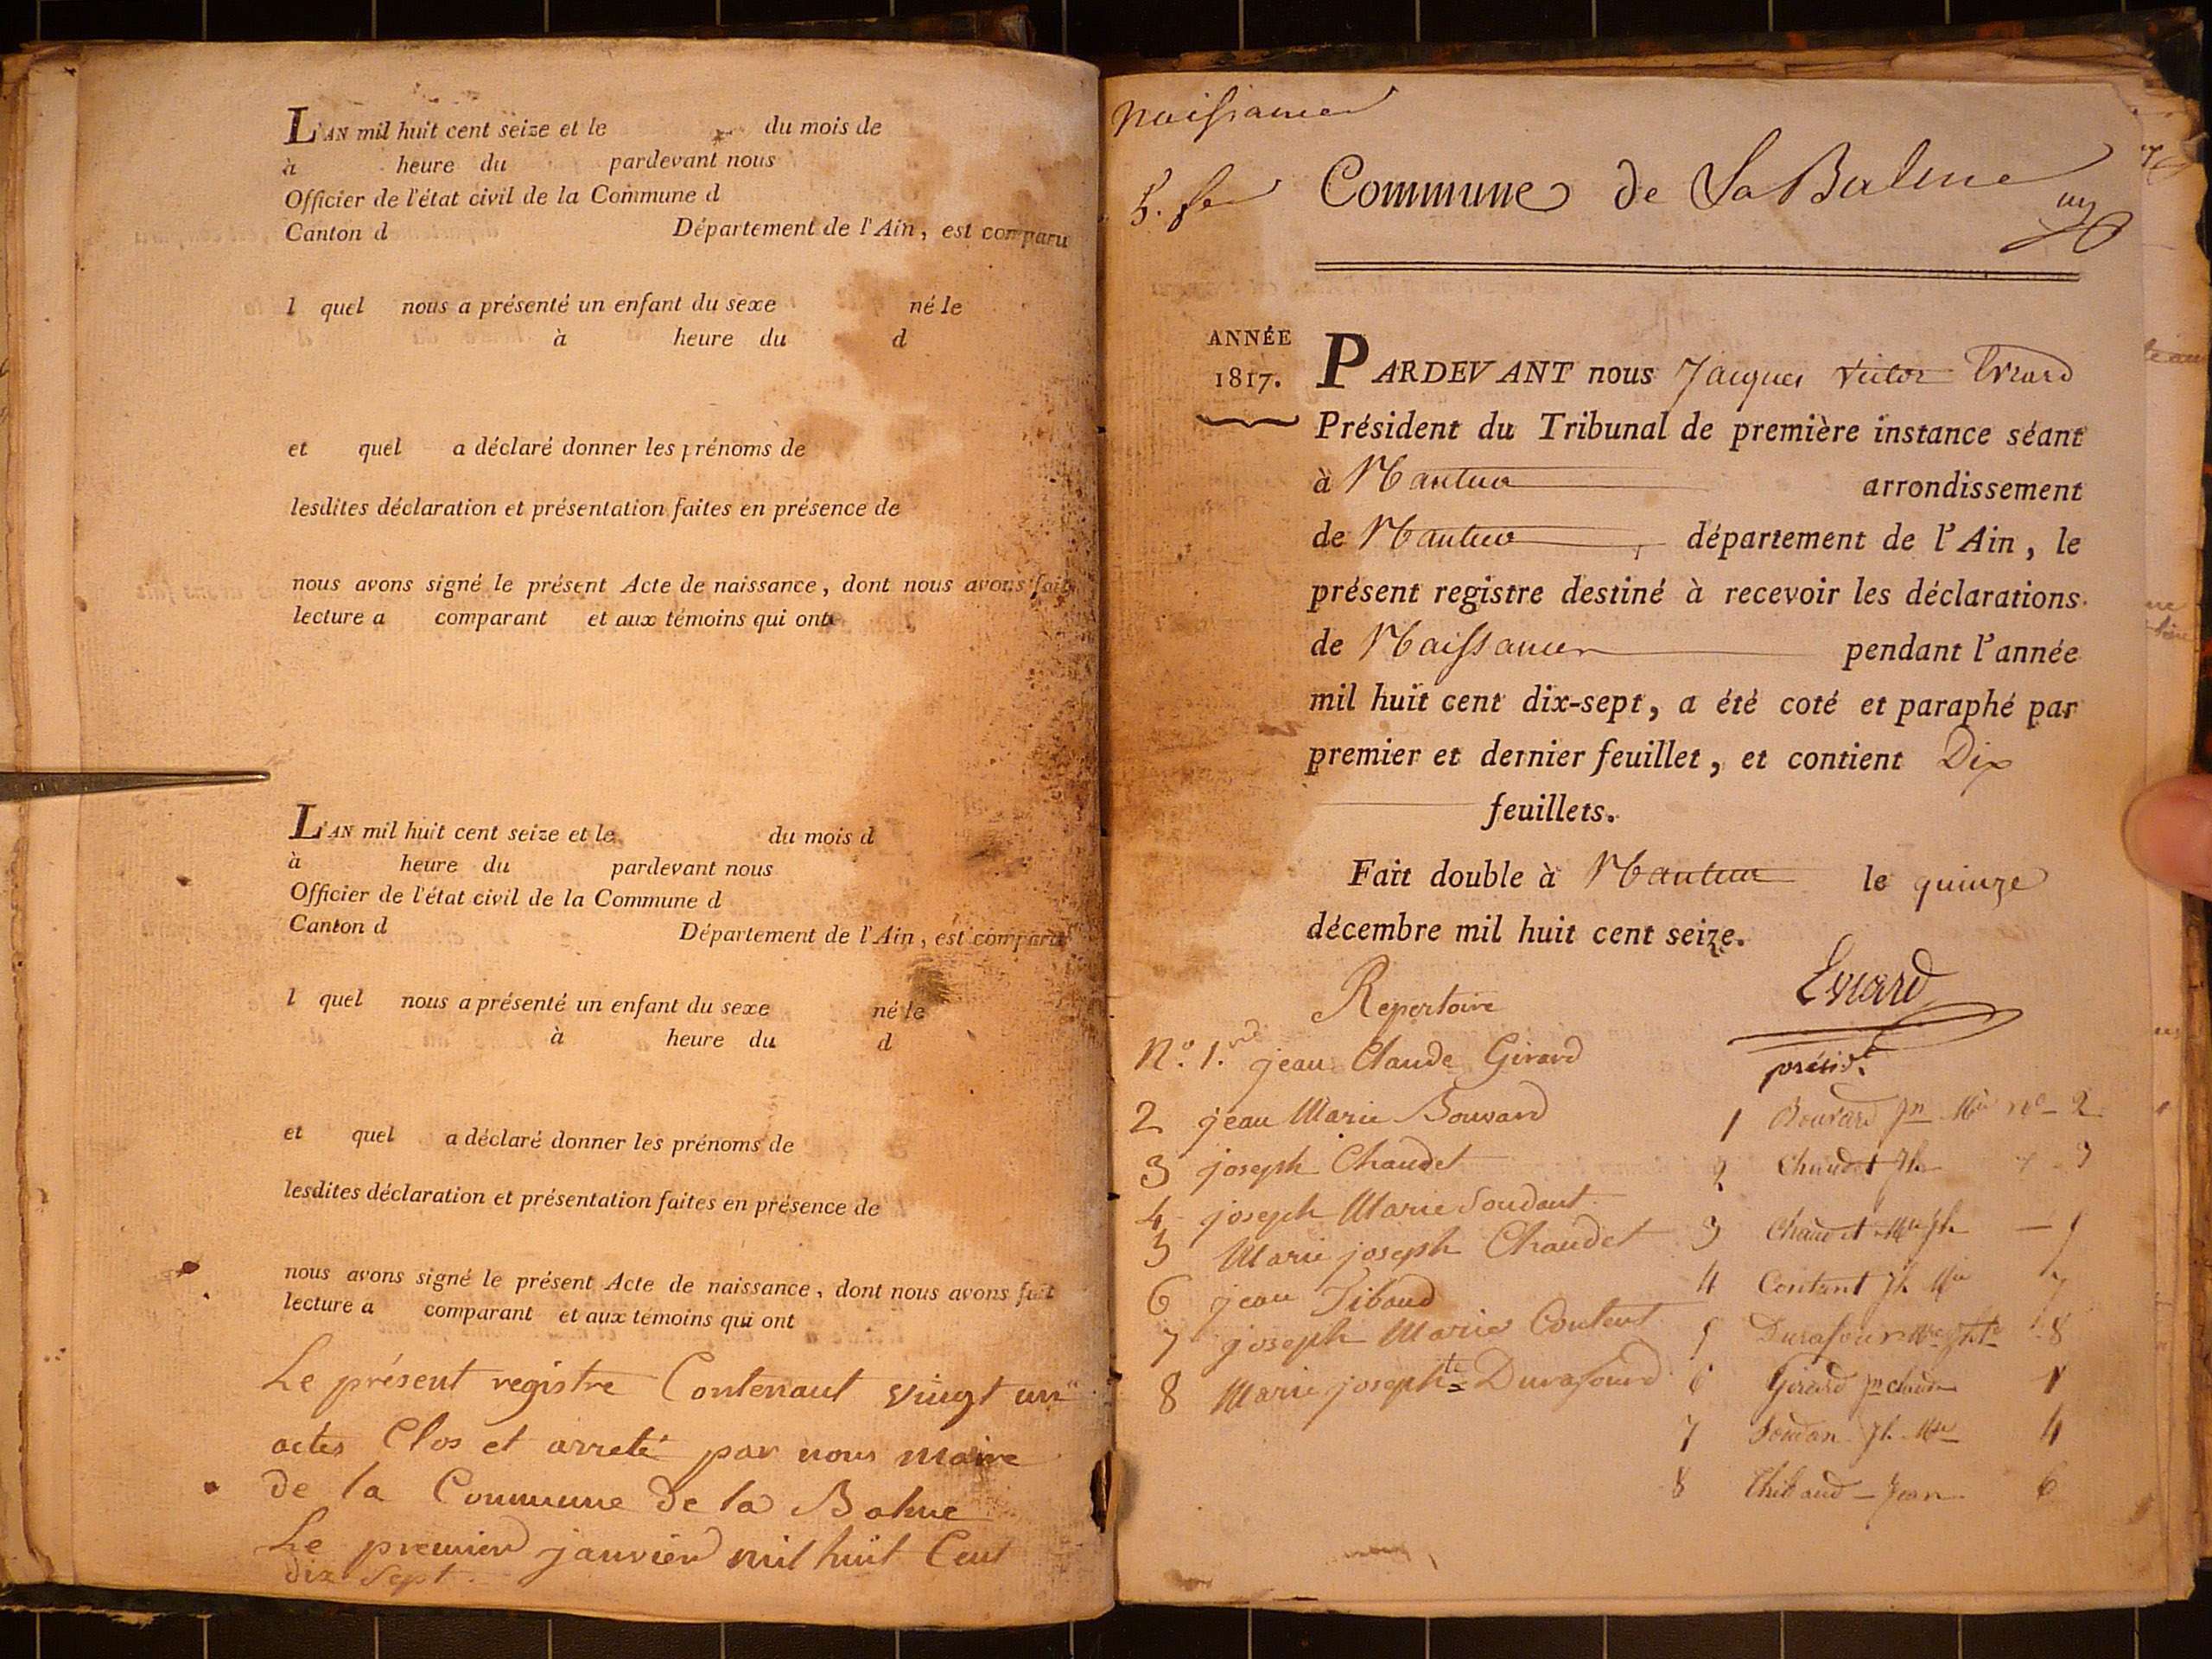 L'AN mil huit cent seize et le du mois de
à heure du pardevant nous
Officier de l'état civil de la Commune d
Canton d Département de l'Ain, est comparu
l quel nous a présenté un enfant du sexe né le
à heure du d
et quel a déclaré donner les prénoms de
lesdites déclaration et présentation faites en présence de
nous avons signé le présent Acte de naissance, dont nous avons fait
lecture a comparant et aux témoins qui ont
L'AN mil huit cent seize et le du mois d
à heure du pardevant nous
Officier de l'état civil de la Commune d
Canton d Département de l'Ain, est comparu
l quel nous a présenté un enfant du sexe né le
à heure du d
et quel a déclaré donner les prénoms de
lesdites déclaration et présentation faites en présence de
nous avons signé le présent Acte de naissance, dont nous avons fait
lecture a comparant et aux témoins qui ont
Le présent registre Contenant vingt un
actes Clos et arreté par nous maire
de la Commune de la Balme
Le premier janvier mil huit Cent
dix Sept.
Naissances
Commune de La Balme
ANNÉE
1817.
PARDEVANT nous Jacques Victor Evrard
Président du Tribunal de première instance séant
à Nantua arrondissement
de Nantua, département de l'Ain, le
présent registre destiné à recevoir les déclarations
de Naissances pendant l'année
mil huit cent dix-sept, a été coté et paraphé par
premier et dernier feuillet, et contient Dix
feuillets.
Fait double à Nantua le quinze
décembre mil huit cent seize.
Evrard
présidt.
Repertoire
N.o 1. jean Claude Girard
2 jean Marie Bouvard
3 joseph Chaudet
4 joseph Marie Soudant
5 Marie joseph Chaudet
6 jean Tibaud
7 joseph Marie Content
8 Marie josephte Durafourd
1 Bouvard jn Mie no 2
2 Chaudet jh 3
3 Chaudet Mie jh — 5
4 Content jh Mie 7
5 Durafour Mie jhte 8
6 Girard jn claude 1
7 Soudan jh Mie 4
8 Thibaud — Jean 6